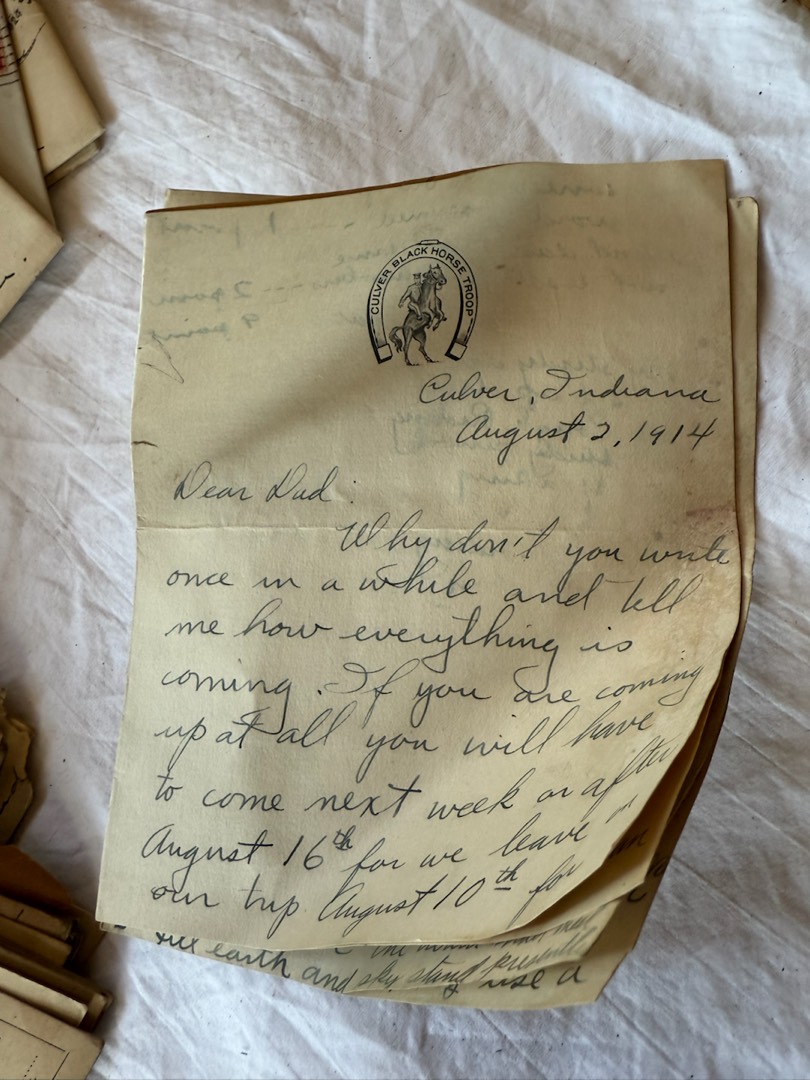 CULVER BLACK HORSE TROOP
Culver, Indiana
August 2, 1914
Dear Dad:
Why don't you write
once in a while and tell
me how everything is
coming. If you are coming
up at all you will have
to come next week or after
August 16th for we leave on
our trip August 10th for
earth and sky stand presently
use a